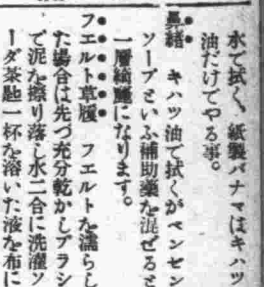 水で拭く、紙製パナマはキハツ
油だけでやる事。
鼻緒 キハツ油で拭くがベンゼン
ソープといふ補助薬を混ぜると
一層綺麗になります。
フエルト草履 フエルトを濡らし
た場合は先づ充分乾かしブラシ
で泥を擦り落し水二合に洗濯ソ
ーダ茶匙一杯を溶いた液を布に